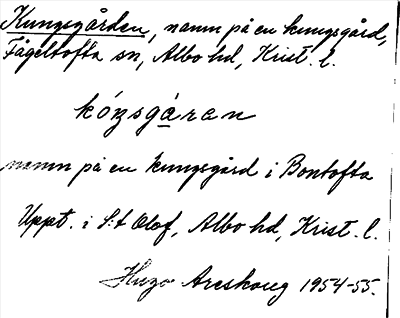 Kungsgården, namn på en kungsgård,
Fågeltofta sn, Albo hd, Krist. l.
kóŋsgǻran
namn på en kungsgård i Bontofta
Uppt. i S:t Olof, Albo hd, Krist. l.
Hugo Areskoug 1954-55.